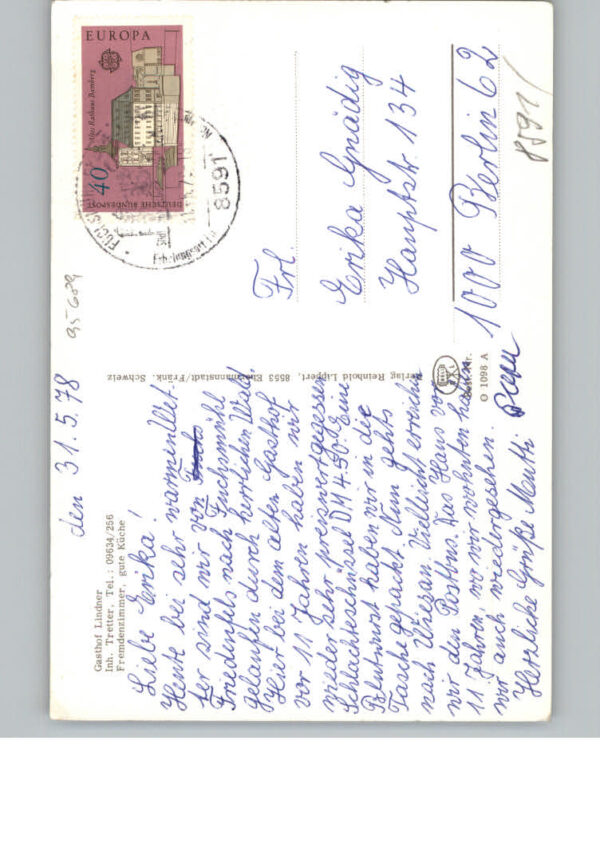 Gasthof Lindner
Inh. Tretter, Tel.: 09634/256
Fremdenzimmer, gute Küche
den 31.5.78
Liebe Erika!
Heute bei sehr warmen Wet-
ter sind wir von
Friedenfels nach Fuchsmühl
gelaufen durch herrlichen Wald.
Hier bei dem alten Gasthof
vor 11 Jahren haben wir
wieder sehr preiswert gegessen
Schlachtschüssel DM 4,50. Eine
Bluwurst haben wir in die
Tasche gepackt. Nun gehts
nach Wiesau. Vielleicht erreichen
wir den Postbus. Das Haus vor
11 Jahren, wo wir wohnten haben
wir auch wiedergesehen.
Herzliche Grüße Mutti
Verlag Reinhold Lippert, 8553 Ebermannstadt/Fränk. Schweiz
Best.-Nr.
O 1098 A
95689
EUROPA
Altes Rathaus Bamberg
40
DEUTSCHE BUNDESPOST
8591
Frl.
Erika Gnädig
Hauptstr. 134
1000 Berlin 62
8591/